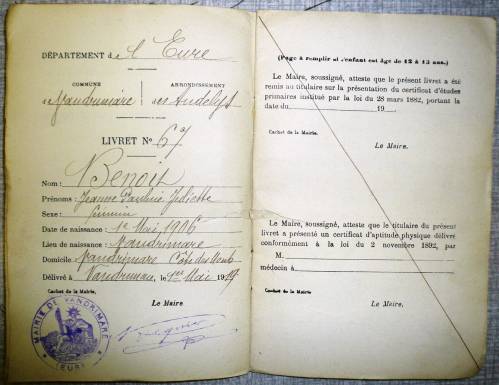 DÉPARTEMENT de l'Eure
COMMUNE
ARRONDISSEMENT
de Vandrimare
des Andelys
LIVRET No 67
Nom: Benoit
Prénoms: Jeanne Pauline Juliette
Sexe: féminin
Date de naissance: 1er Mai 1906
Lieu de naissance: Vandrimare
Domicile Vandrimare
Délivré à Vandrimare, le 1er Mai 1919
Cachet de la Mairie.
Le Maire
MAIRIE DE VANDRIMARE
(EURE)
(Page à remplir si l'enfant est âgé de 12 à 13 ans.)
Le Maire, soussigné, atteste que le présent livret a été
remis au titulaire sur la présentation du certificat d'études
primaires institué par la loi du 28 mars 1882, portant la
date du 19
Cachet de la Mairie.
Le Maire.
Le Maire, soussigné, atteste que le titulaire du présent
livret a présenté un certificat d'aptitude physique délivré
conformément à la loi du 2 novembre 1892, par
M.
médecin à
Cachet de la Mairie.
Le Maire.